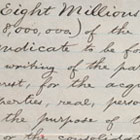 Eight Millions
8,000,000) of the
ndicate to be fo
writing of the pa
net, for the acq
perties, real, perso
the purpose of
or the consolid